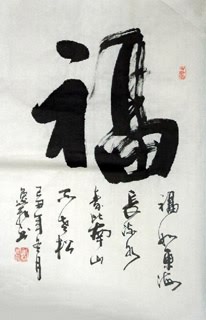 福
福如東海
長流水
壽比南山
不老松
己丑年冬月